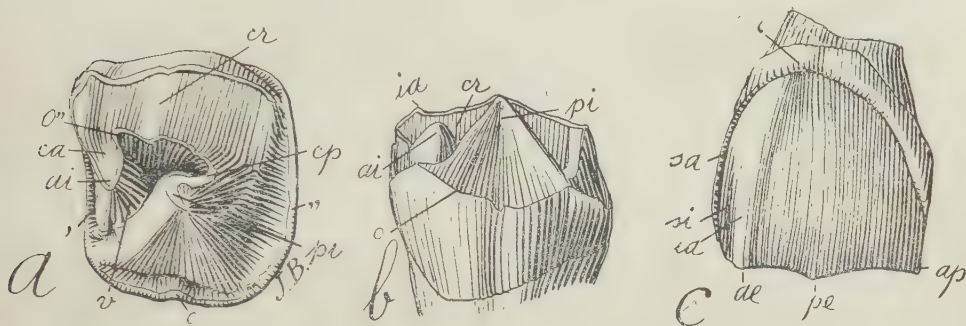 cr
o"
ca
ai
'
cp
"
pi
J.B.
v
c
a
ia
cr
pi
ai
c
b
c
sa
si
ia
ae
pe
ap
c